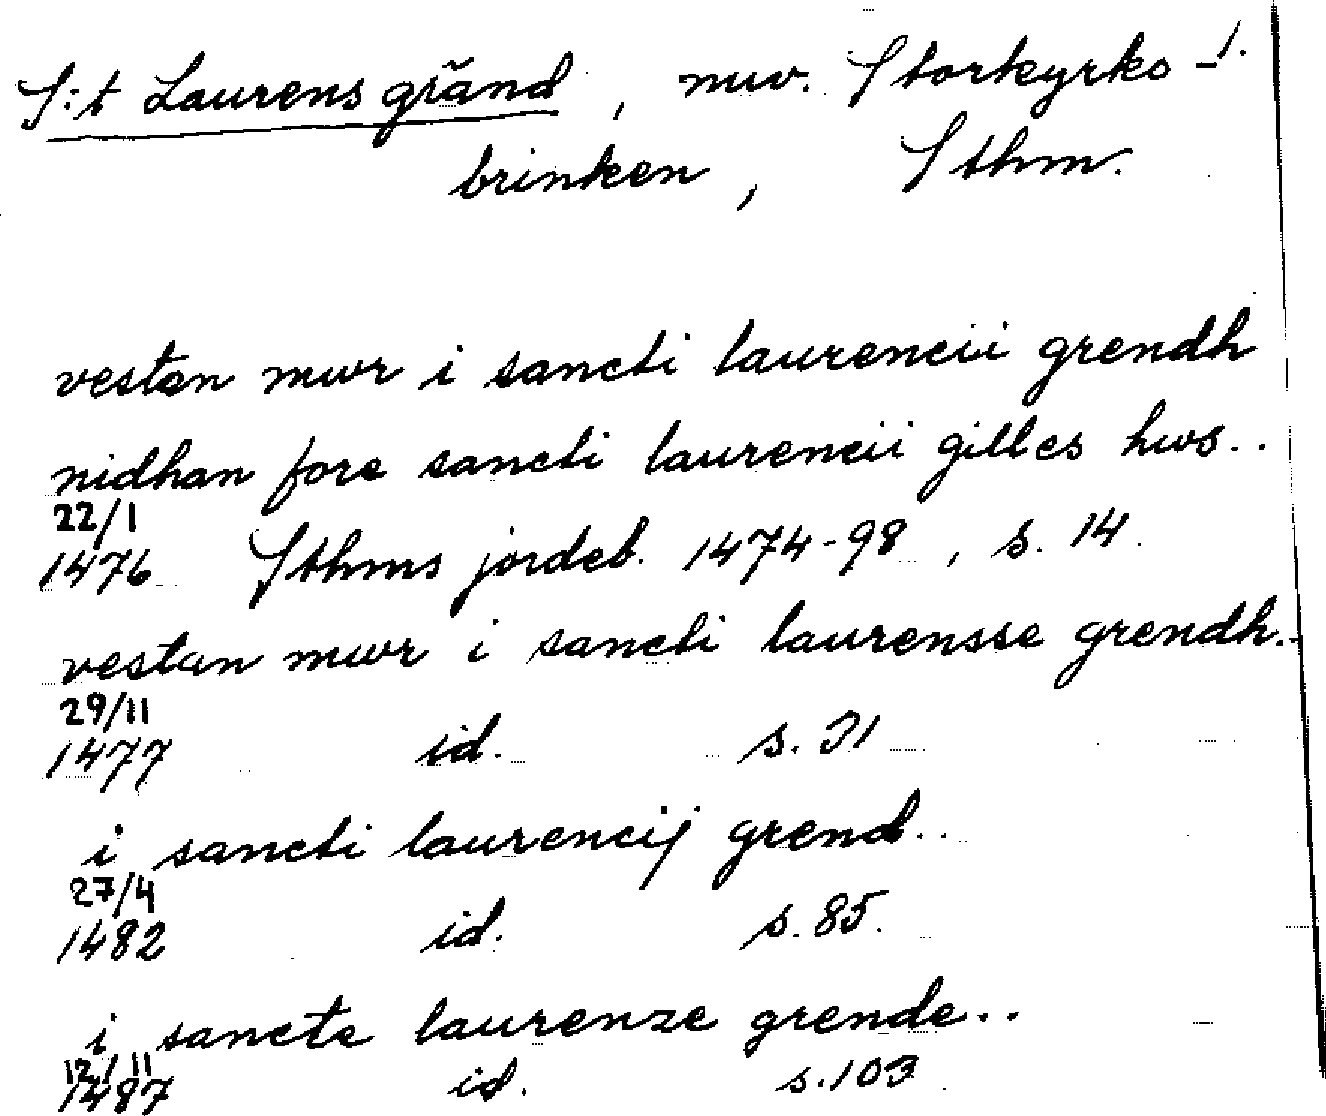 S:t Laurens gränd, nuv. Storkyrko- 1.
brinken, Sthm.
vestan mwr i sancti laurencii grendh
nidhan fore sancti laurencii gilles hws..
22/1
1476 Sthms jordeb. 1474-98, s. 14.
vestan mwr i sancti laurensse grendh..
29/11
1477 id. s. 31
i sancti laurencij grend..
27/4
1482 id. s. 85.
i sancte laurenze grende..
12/11
1487 id. s. 103